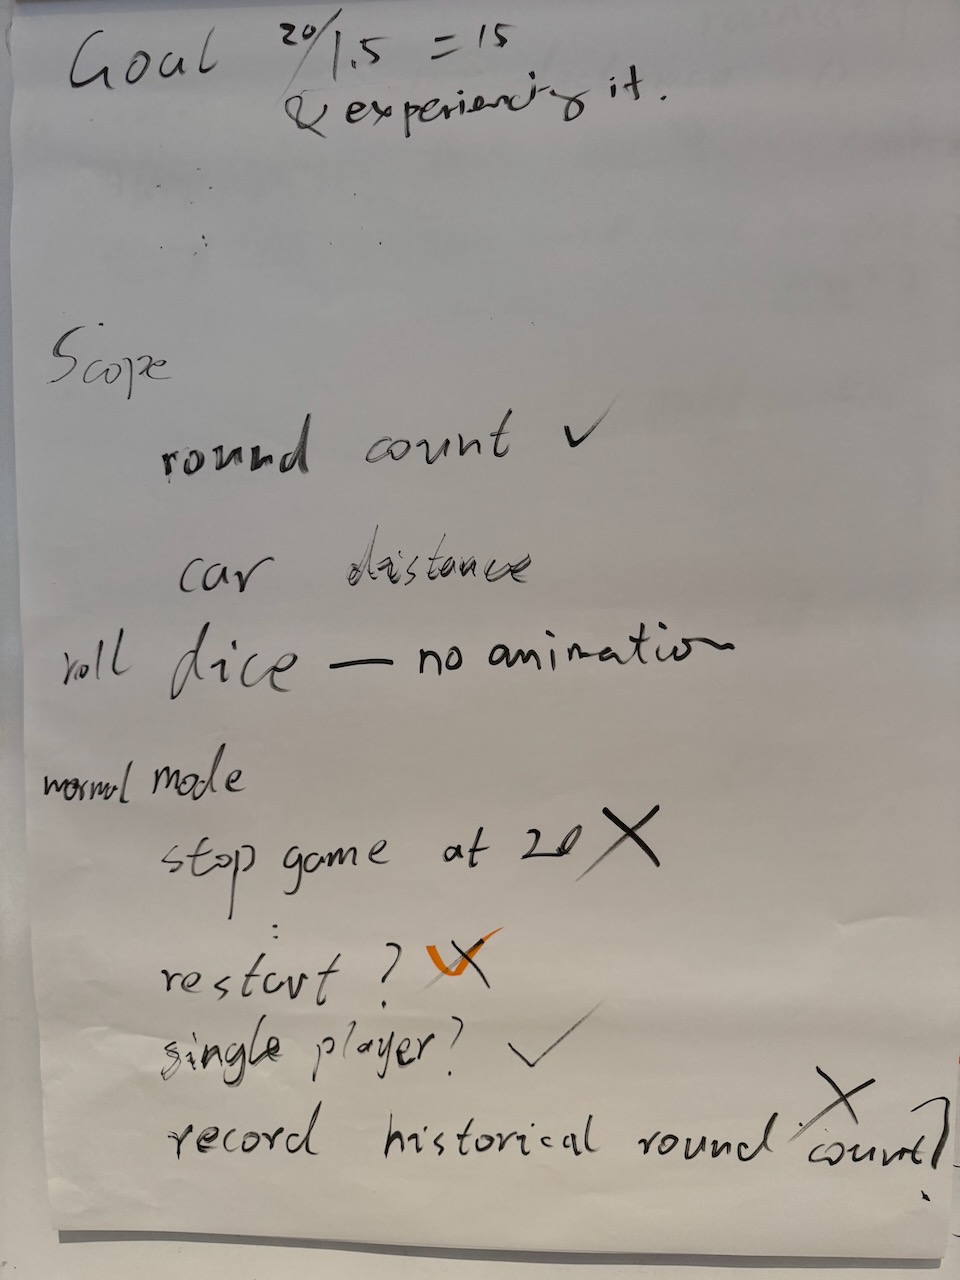 Goal 20/1.5 = 15
& experiencing it.
Scope
round count ✓
car distance
roll dice — no animation
normal mode
stop game at 20 X
restart ? ✓ X
single player? ✓
record historical round count? X